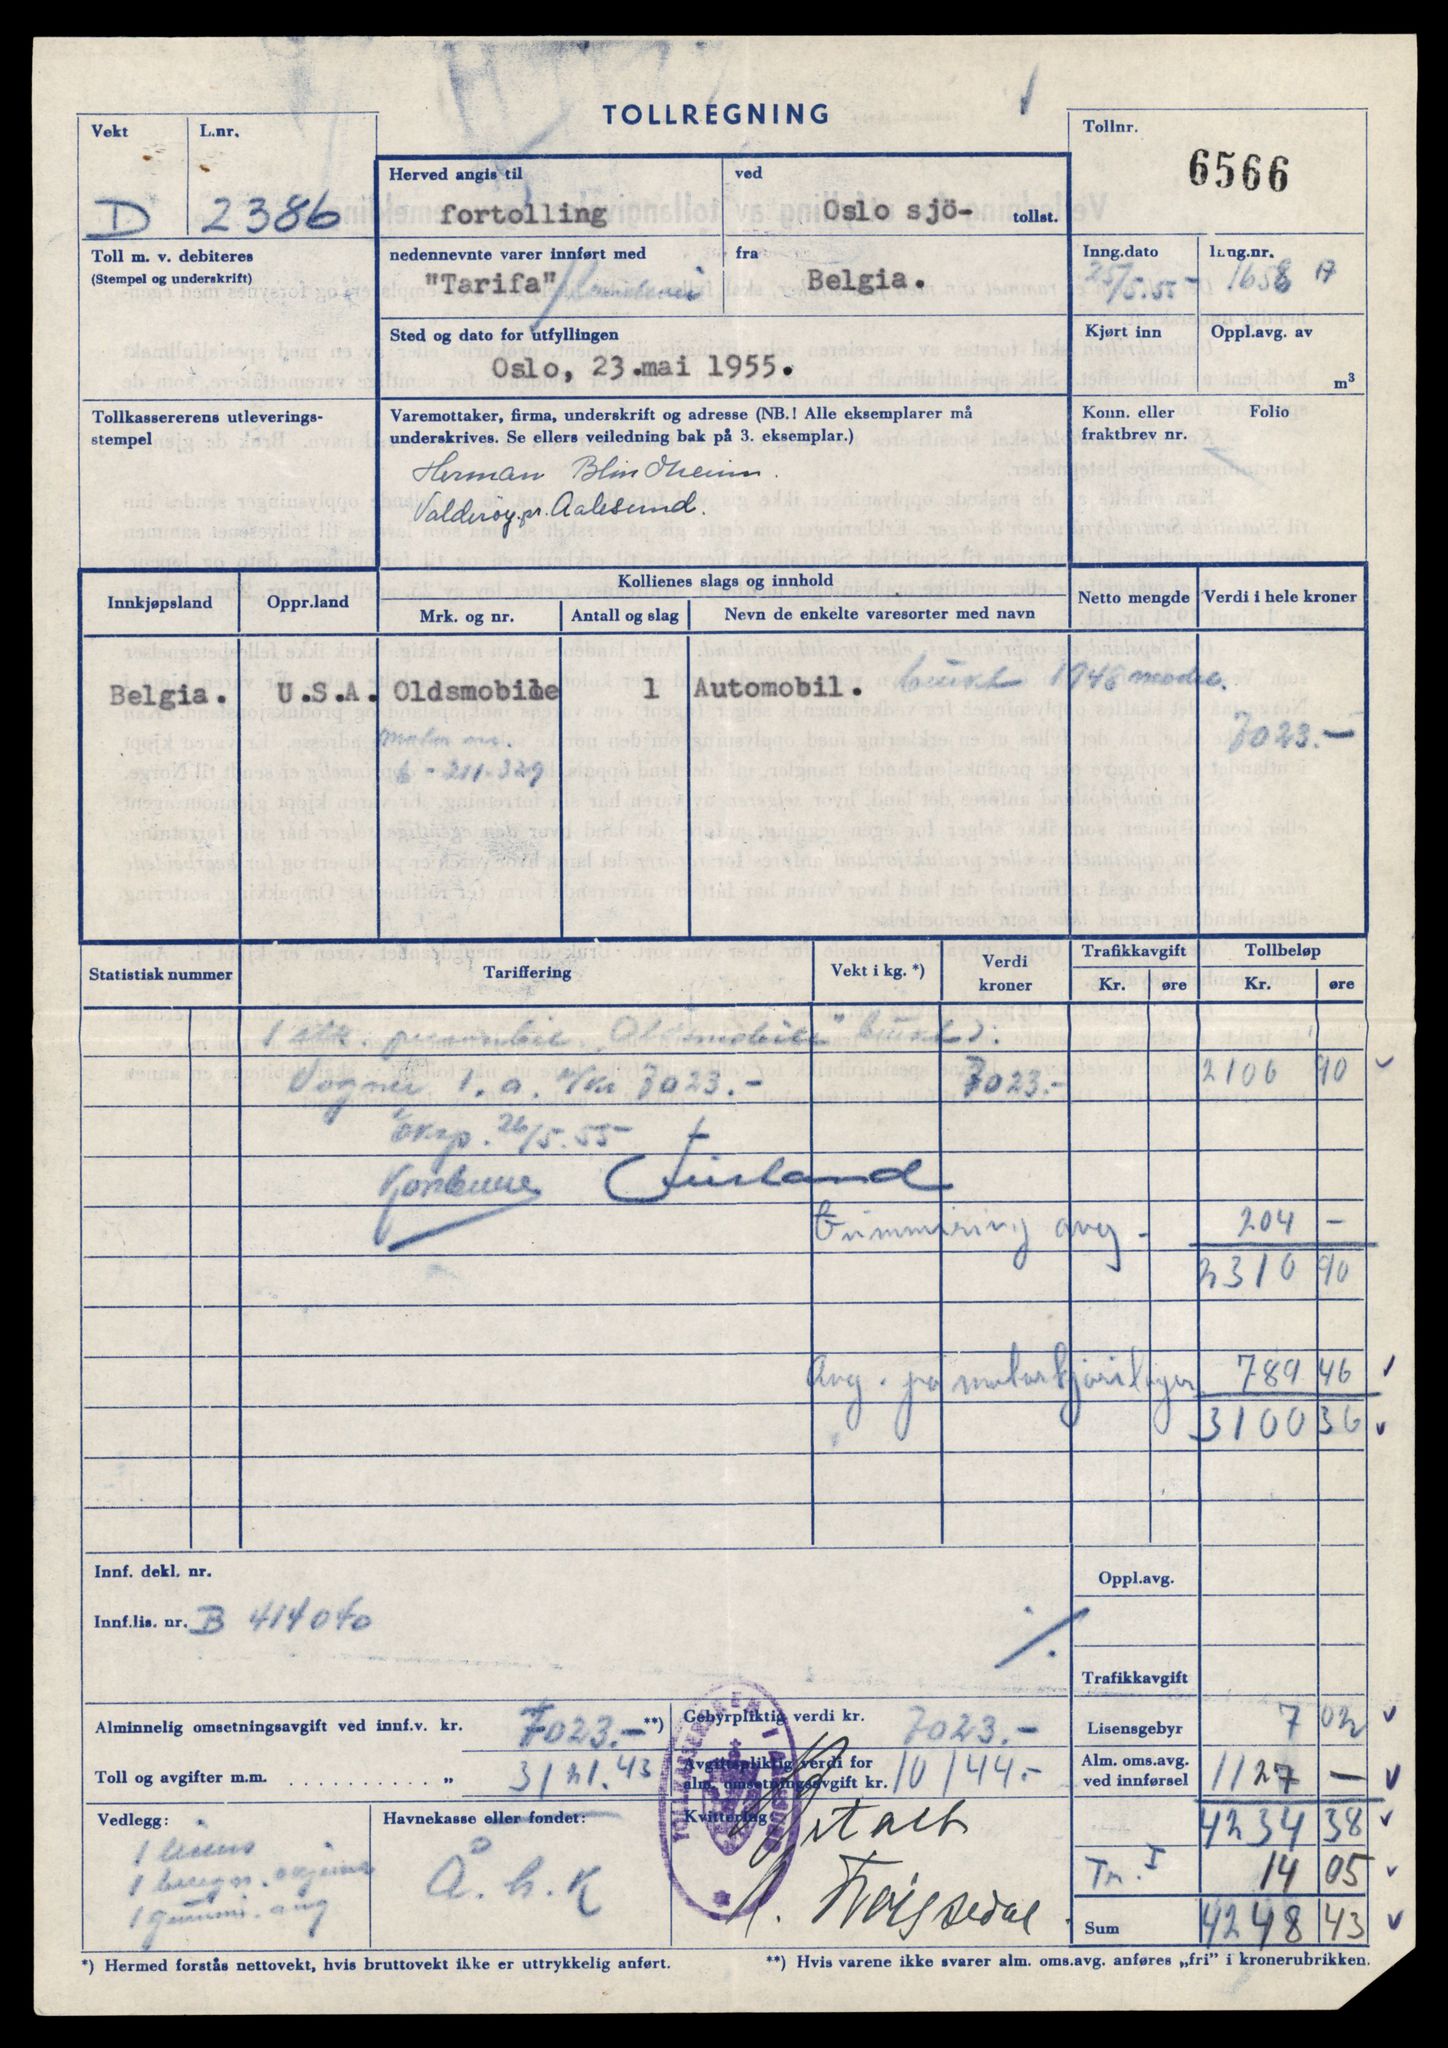 TOLLREGNING
Vekt
L.nr.
D
2386
Herved angis til
fortolling
ved
Oslo sjö- tollst.
Tollnr.
6566
Toll m. v. debiteres
(Stempel og underskrift)
nedennevnte varer innført med
"Tarifa"
fra
Belgia.
Inng.dato
25/5.55
Inng.nr.
1658 17
Sted og dato for utfyllingen
Oslo, 23.mai 1955.
Kjørt inn
Oppl.avg. av
m³
Tollkassererens utleverings-
stempel
Varemottaker, firma, underskrift og adresse (NB.! Alle eksemplarer må
underskrives. Se ellers veiledning bak på 3. eksemplar.)
Herman Blindheim.
Valderøy pr. Aalesund.
Konn. eller
fraktbrev nr.
Folio
Innkjøpsland
Oppr.land
Kollienes slags og innhold
Mrk. og nr.
Antall og slag
Nevn de enkelte varesorter med navn
Netto mengde
Verdi i hele kroner
Belgia. U.S.A. Oldsmobile 1 Automobil. brukt 1948 model.
7023.-
motor nr.
6-211-329
Statistisk nummer
Tariffering
Vekt i kg. *)
Verdi
kroner
Trafikkavgift
Kr. øre
Tollbeløp
Kr. øre
1 stk. personbil "Oldsmobile" brukt ).
Vogner 1. a. v/kr 7023.- 7023.- 2106 90
Eksp. 26/5.55
Gummiring avg - 204 -
2310 90
Avg. på motorkjøretøyer 789 46
3100 36
Innf. dekl. nr.
Innf.lis. nr. B 414040
Oppl.avg.
Trafikkavgift
Alminnelig omsetningsavgift ved innf.v. kr. 7023.- **)
Gebyrpliktig verdi kr. 7023.-
Lisensgebyr 7 02
Toll og avgifter m.m. . . . . . . . . . . „ 3121.43
Avgiftspliktig verdi for
alm. omsetningsavgift kr. 10144.-
Alm. oms.avg.
ved innførsel 1127 -
Vedlegg:
1 lisens
1 gummi. avg
Havnekasse eller fondet:
Å. h. K
Kvittering
4234 38
Tr. I 14 05
Sum 4248 43
*) Hermed forstås nettovekt, hvis bruttovekt ikke er uttrykkelig anført.
**) Hvis varene ikke svarer alm. oms.avg. anføres „fri” i kronerubrikken.